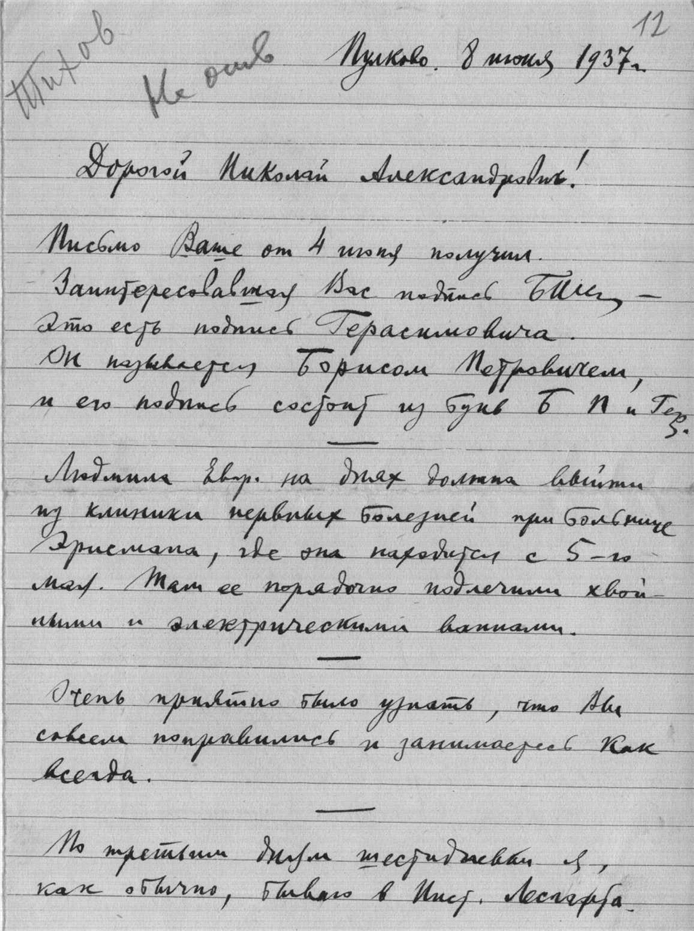 12
Тихов
Не опив
Пулково. 8 июня 1937 г.
Дорогой Николай Александрович!
Письмо Ваше от 4 июня получил.
Заинтересовавшая Вас подпись –
это есть подпись Герасимовича.
Он называется Борисом Петровичем,
и его подпись состоит из букв Б П и Гер.
Людмила Евгр. на днях должна выйти
из клиники нервных болезней при больнице
Эрисмана, где она находится с 5-го
мая. Там ее порядочно подлечили хвой-
ными и электрическими ваннами.
Очень приятно было узнать, что Вы
совсем поправились и занимаетесь как
всегда.
По третьим дням шестидневки я,
как обычно, бываю в Инст. Лесгафта.